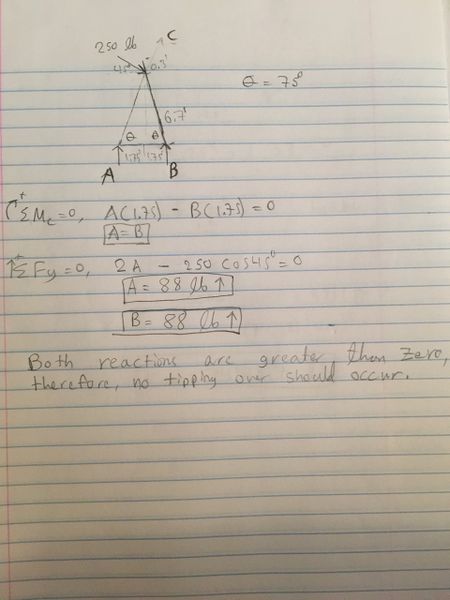 C
250 lb
45° 0.3'
θ = 75°
6.7'
θ θ
1.75' 1.75'
A B
+ ΣMc = 0, A(1.75) - B(1.75) = 0
A = B
+↑ΣFy = 0, 2A - 250 cos45° = 0
A = 88 lb ↑
B = 88 lb ↑
Both reactions are greater then zero,
therefore, no tipping over should occur.